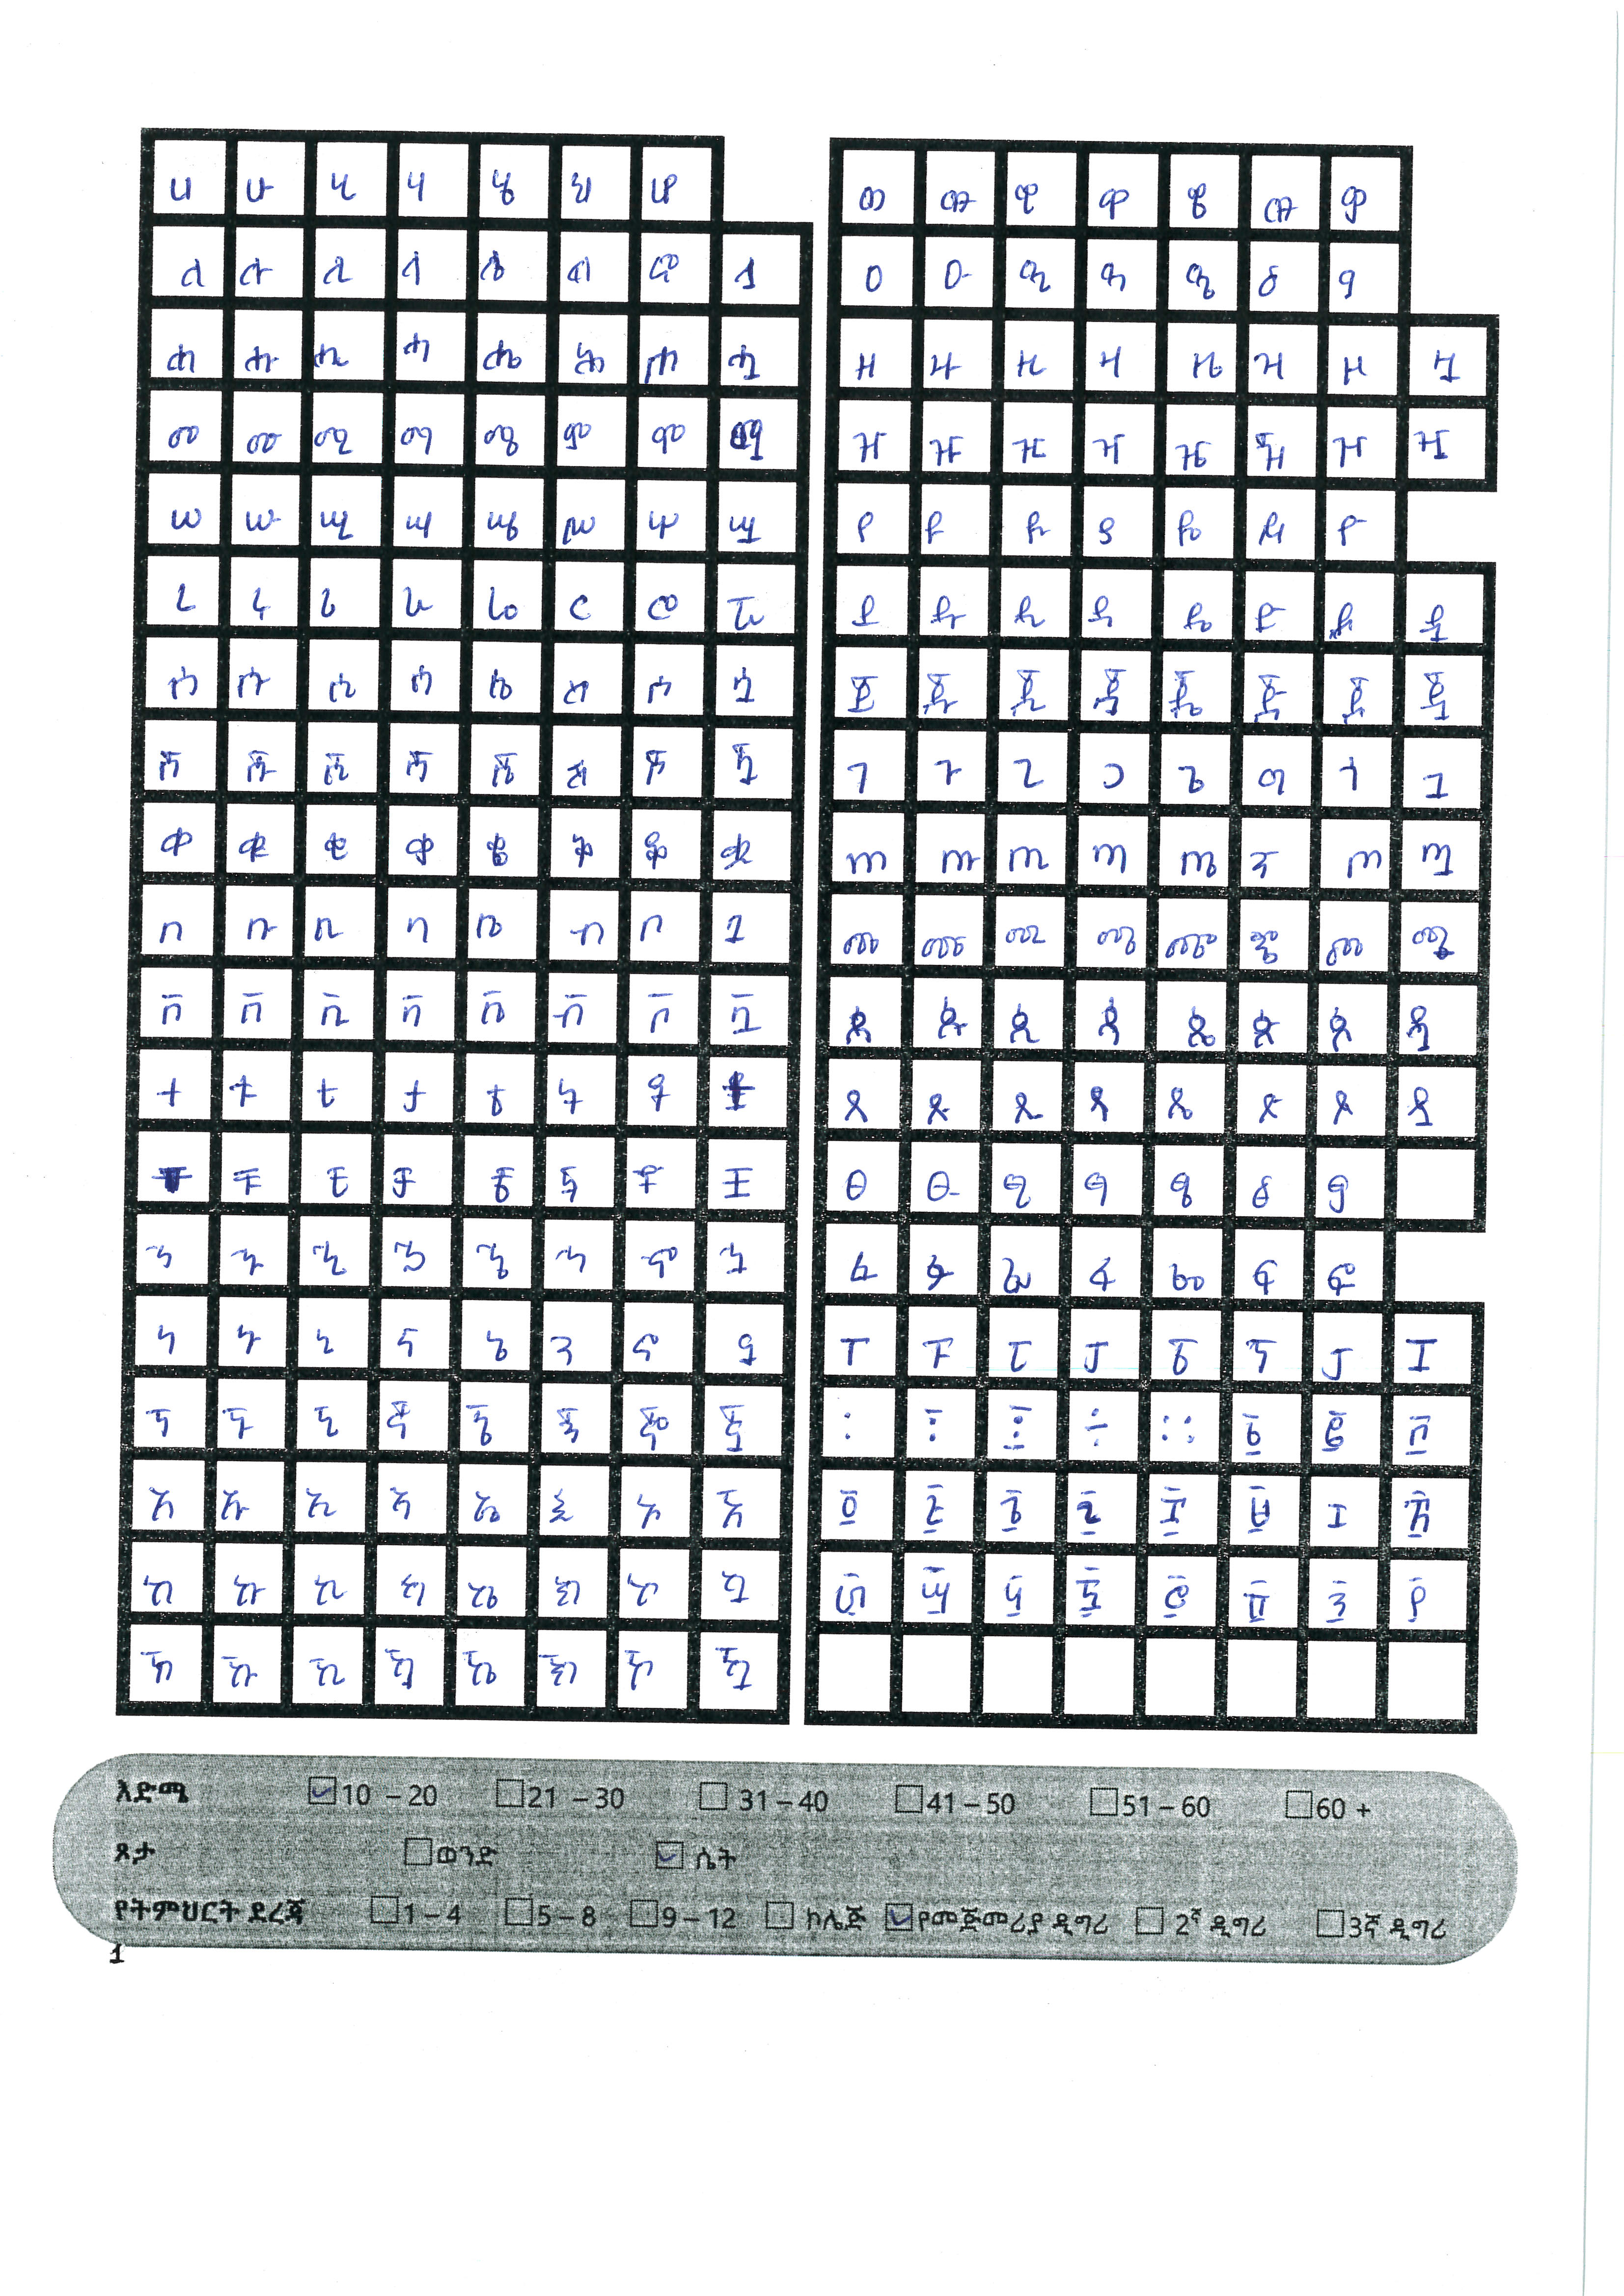 ሀ ሁ ሂ ሃ ሄ ህ ሆ
ለ ሉ ሊ ላ ሌ ል ሎ ሏ
ሐ ሑ ሒ ሓ ሔ ሕ ሖ ሗ
መ ሙ ሚ ማ ሜ ም ሞ ሟ
ሠ ሡ ሢ ሣ ሤ ሥ ሦ ሧ
ረ ሩ ሪ ራ ሬ ር ሮ ሯ
ሰ ሱ ሲ ሳ ሴ ስ ሶ ሷ
ሸ ሹ ሺ ሻ ሼ ሽ ሾ ሿ
ቀ ቁ ቂ ቃ ቄ ቅ ቆ ቋ
በ ቡ ቢ ባ ቤ ብ ቦ ቧ
ቨ ቩ ቪ ቫ ቬ ቭ ቮ ቯ
ተ ቱ ቲ ታ ቴ ት ቶ ቷ
ቸ ቹ ቺ ቻ ቼ ች ቾ ቿ
ኀ ኁ ኂ ኃ ኄ ኅ ኆ ኋ
ነ ኑ ኒ ና ኔ ን ኖ ኗ
ኘ ኙ ኚ ኛ ኜ ኝ ኞ ኟ
አ ኡ ኢ ኣ ኤ እ ኦ ኧ
ከ ኩ ኪ ካ ኬ ክ ኮ ኳ
ኸ ኹ ኺ ኻ ኼ ኽ ኾ ዃ
ወ ዉ ዊ ዋ ዌ ው ዎ
ዐ ዑ ዒ ዓ ዔ ዕ ዖ
ዘ ዙ ዚ ዛ ዜ ዝ ዞ ዟ
ዠ ዡ ዢ ዣ ዤ ዥ ዦ ዧ
የ ዩ ዪ ያ ዬ ይ ዮ
ደ ዱ ዲ ዳ ዴ ድ ዶ ዷ
ጀ ጁ ጂ ጃ ጄ ጅ ጆ ጇ
ገ ጉ ጊ ጋ ጌ ግ ጎ ጓ
ጠ ጡ ጢ ጣ ጤ ጥ ጦ ጧ
ጨ ጩ ጪ ጫ ጬ ጭ ጮ ጯ
ጰ ጱ ጲ ጳ ጴ ጵ ጶ ጷ
ጸ ጹ ጺ ጻ ጼ ጽ ጾ ጿ
ፀ ፁ ፂ ፃ ፄ ፅ ፆ
ፈ ፉ ፊ ፋ ፌ ፍ ፎ
ፐ ፑ ፒ ፓ ፔ ፕ ፖ ፗ
፡ ፣ ፤ ÷ ። ፩ ፪ ፫
፬ ፭ ፮ ፯ ፰ ፱ ፲ ፳
፴ ፵ ፶ ፷ ፸ ፹ ፺ ፻
እድሜ 10 – 20 21 – 30 31 – 40 41 – 50 51 – 60 60 +
ጾታ ወንድ ሴት
የትምህርት ደረጃ 1 – 4 5 – 8 9 – 12 ኮሌጅ የመጀመሪያ ዲግሪ 2ኛ ዲግሪ 3ኛ ዲግሪ
1